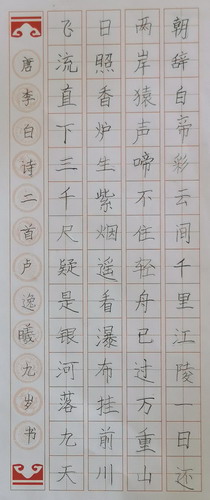 朝辞白帝彩云间千里江陵一日还
两岸猿声啼不住轻舟已过万重山
日照香炉生紫烟遥看瀑布挂前川
飞流直下三千尺疑是银河落九天
唐李白诗二首卢逸曦九岁书